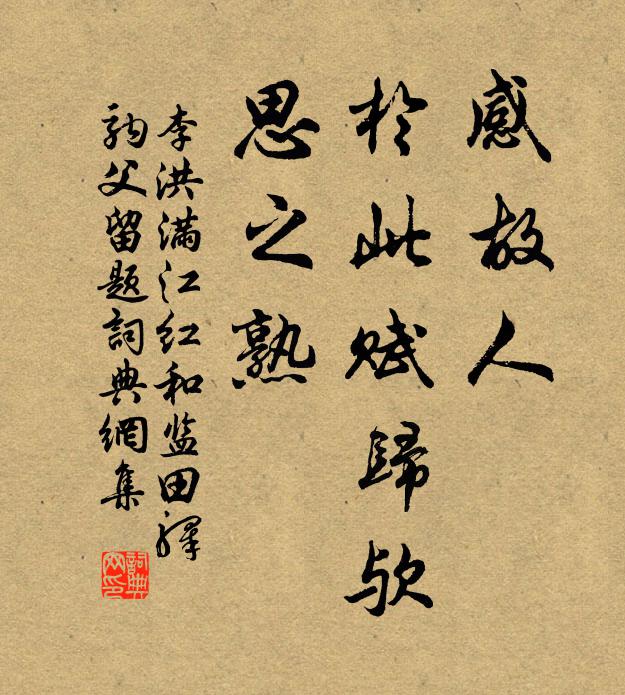 感故人
於此赋歸欤
思之熟
李洪满江红和监田驛
父留题詞典網集
詞典网印